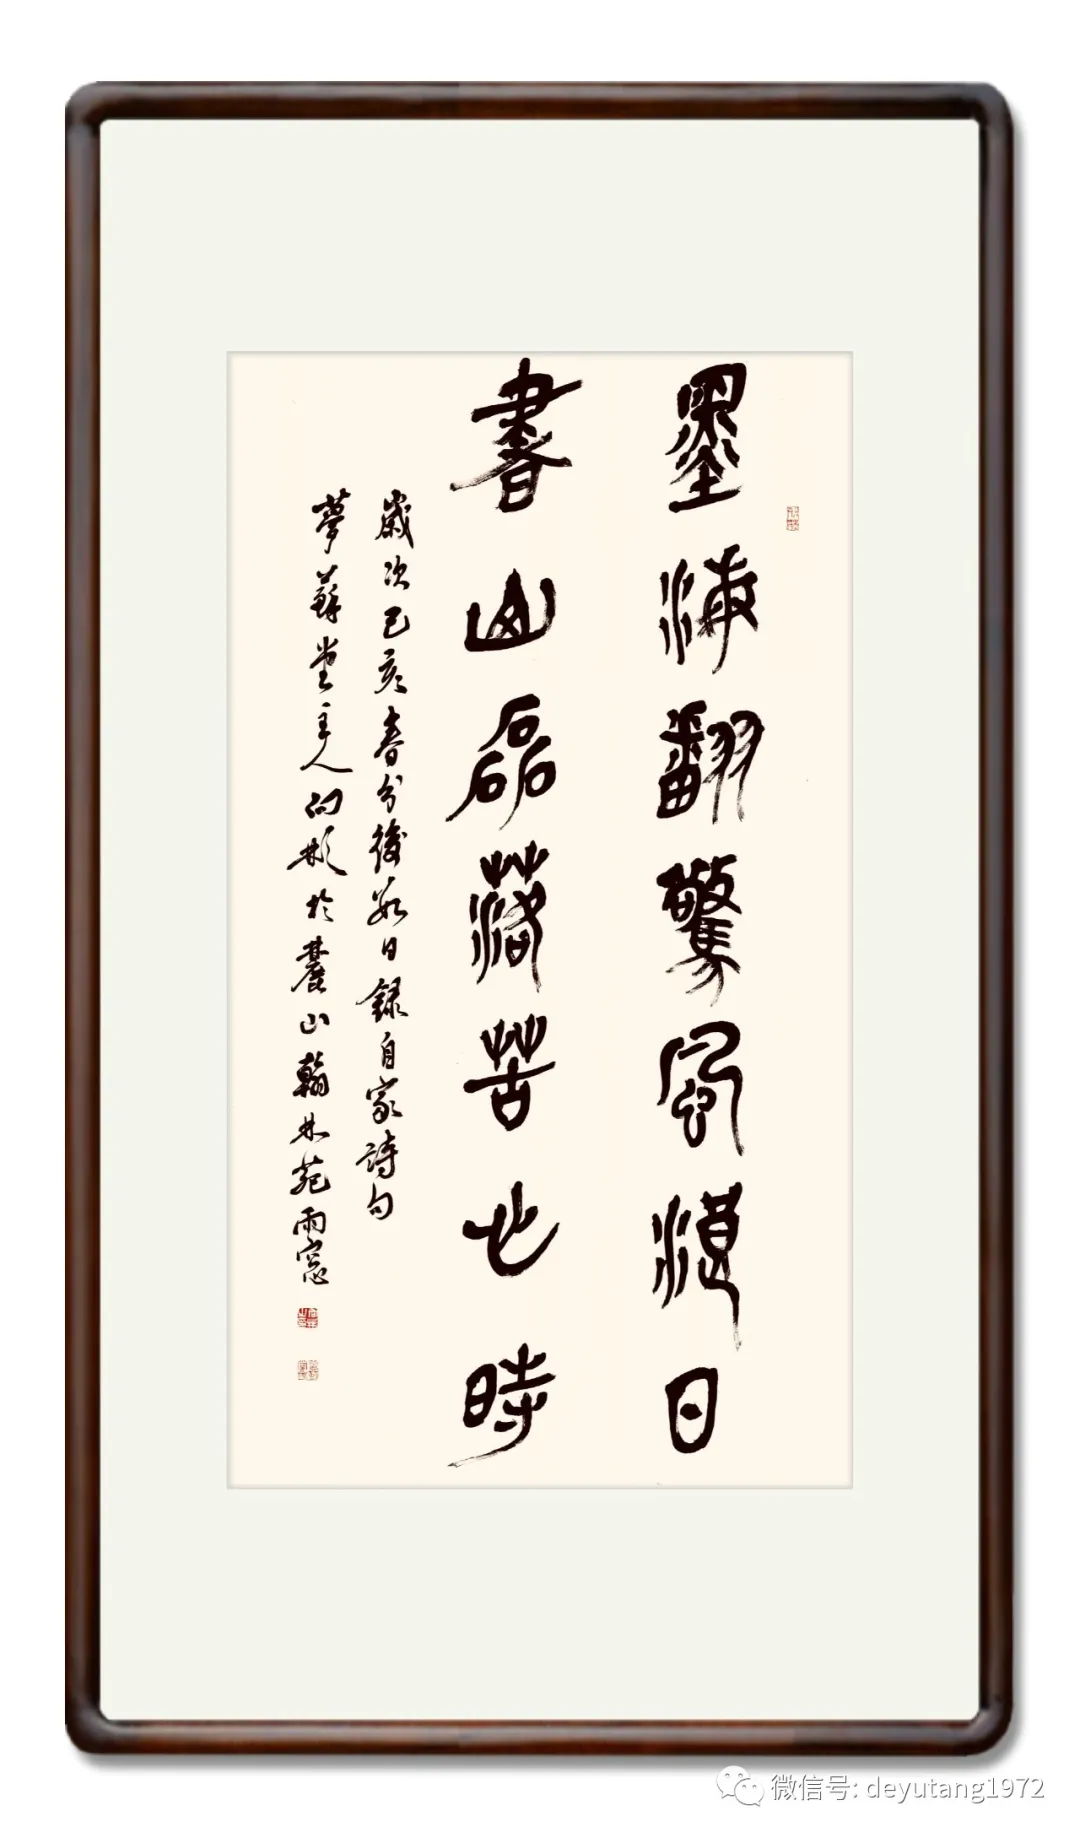 墨海翻驚風浪日
書山磊落苦心時
歲次己亥春分後數日錄自家詩句
夢蘇堂主人於麓山翰林苑雨窗
微信号: deyutang1972